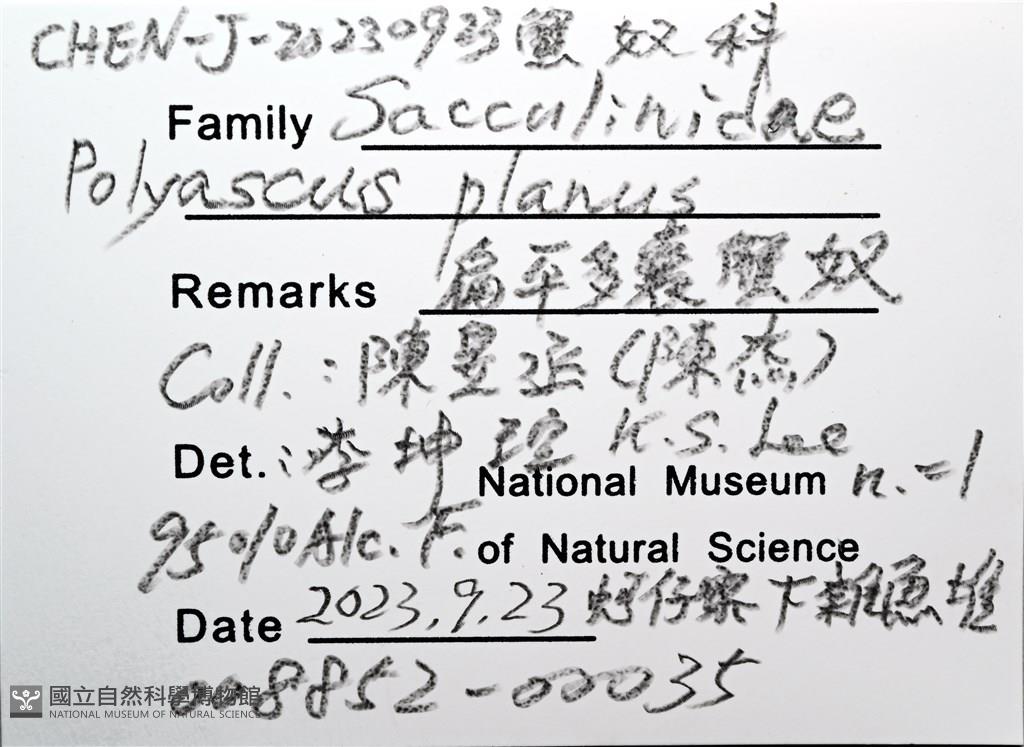 CHEN-J-20230923 蟹奴科
Family Sacculinidae
Polyascus planus
Remarks 扁平多囊蟹奴
Coll.:陳昱丞(陳杰)
Det.:李坤瑄 K.S. Lee
National Museum n.=1
95%Alc. F. of Natural Science
Date 2023.9.23 蚵仔寮下雜魚堆
008852-00035
國立自然科學博物館
NATIONAL MUSEUM OF NATURAL SCIENCE